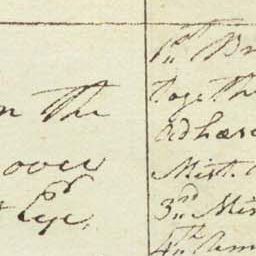 n the
over
Eye.
1st Br
togethe
adhære
Mist.
3rd Mis
4th